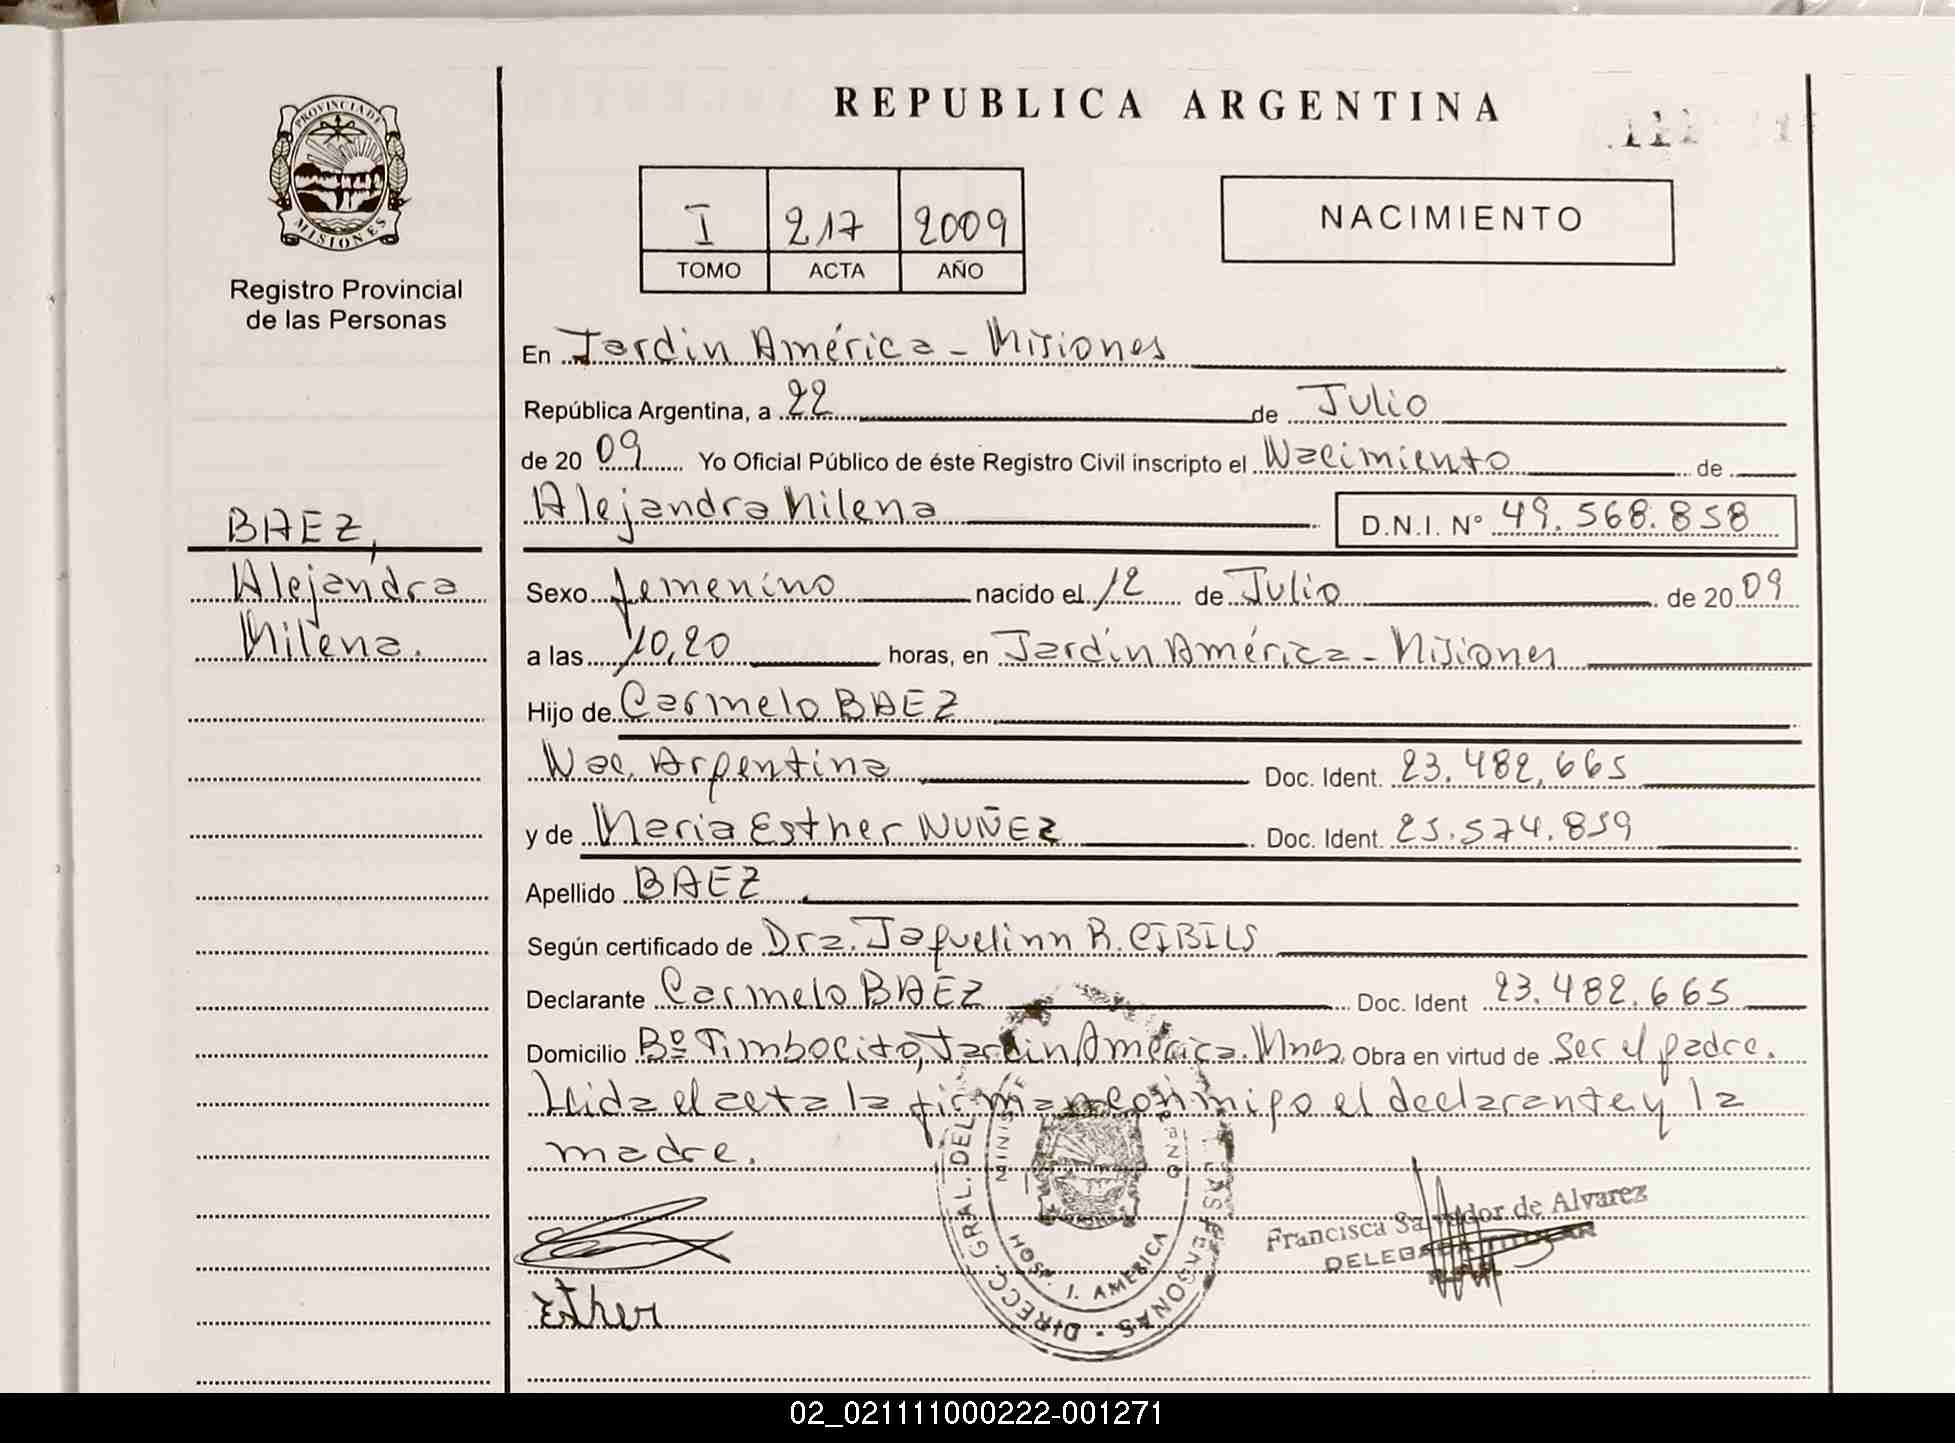 REPUBLICA ARGENTINA
PROVINCIA DE
MISIONES
Registro Provincial
de las Personas
I 217 2009
TOMO ACTA AÑO
NACIMIENTO
En Jardin América - Misiones
República Argentina, a 22 de Julio
de 20 09 Yo Oficial Público de éste Registro Civil inscripto el Nacimiento de
Alejandra Milena D.N.I. N° 49.568.858
BAEZ,
Alejandra
Milena.
Sexo femenino nacido el 12 de Julio de 20 09
a las 10,20 horas, en Jardín América - Misiones
Hijo de Carmelo BAEZ
Nac. Argentina Doc. Ident. 23.482.665
y de Maria Esther NUÑEZ Doc. Ident. 25.574.859
Apellido BAEZ
Según certificado de Dra. Jaquelinn R. CIBILS
Declarante Carmelo BAEZ Doc. Ident 23.482.665
Domicilio Bº Timbocito, Jardin América. Mnes Obra en virtud de Ser el padre.
Leida el acta la firman conmigo el declarante y la
madre.
Francisca Salvador de Alvarez
DELEGADA TITULAR
Esther
DIRECC. GRAL. DEL PERSONAS
HOSP. J. AMERICA
02_021111000222-001271